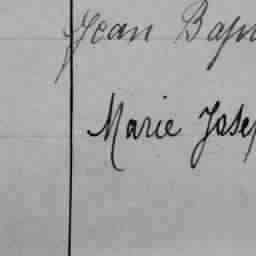 Jean Bap
Marie Josep